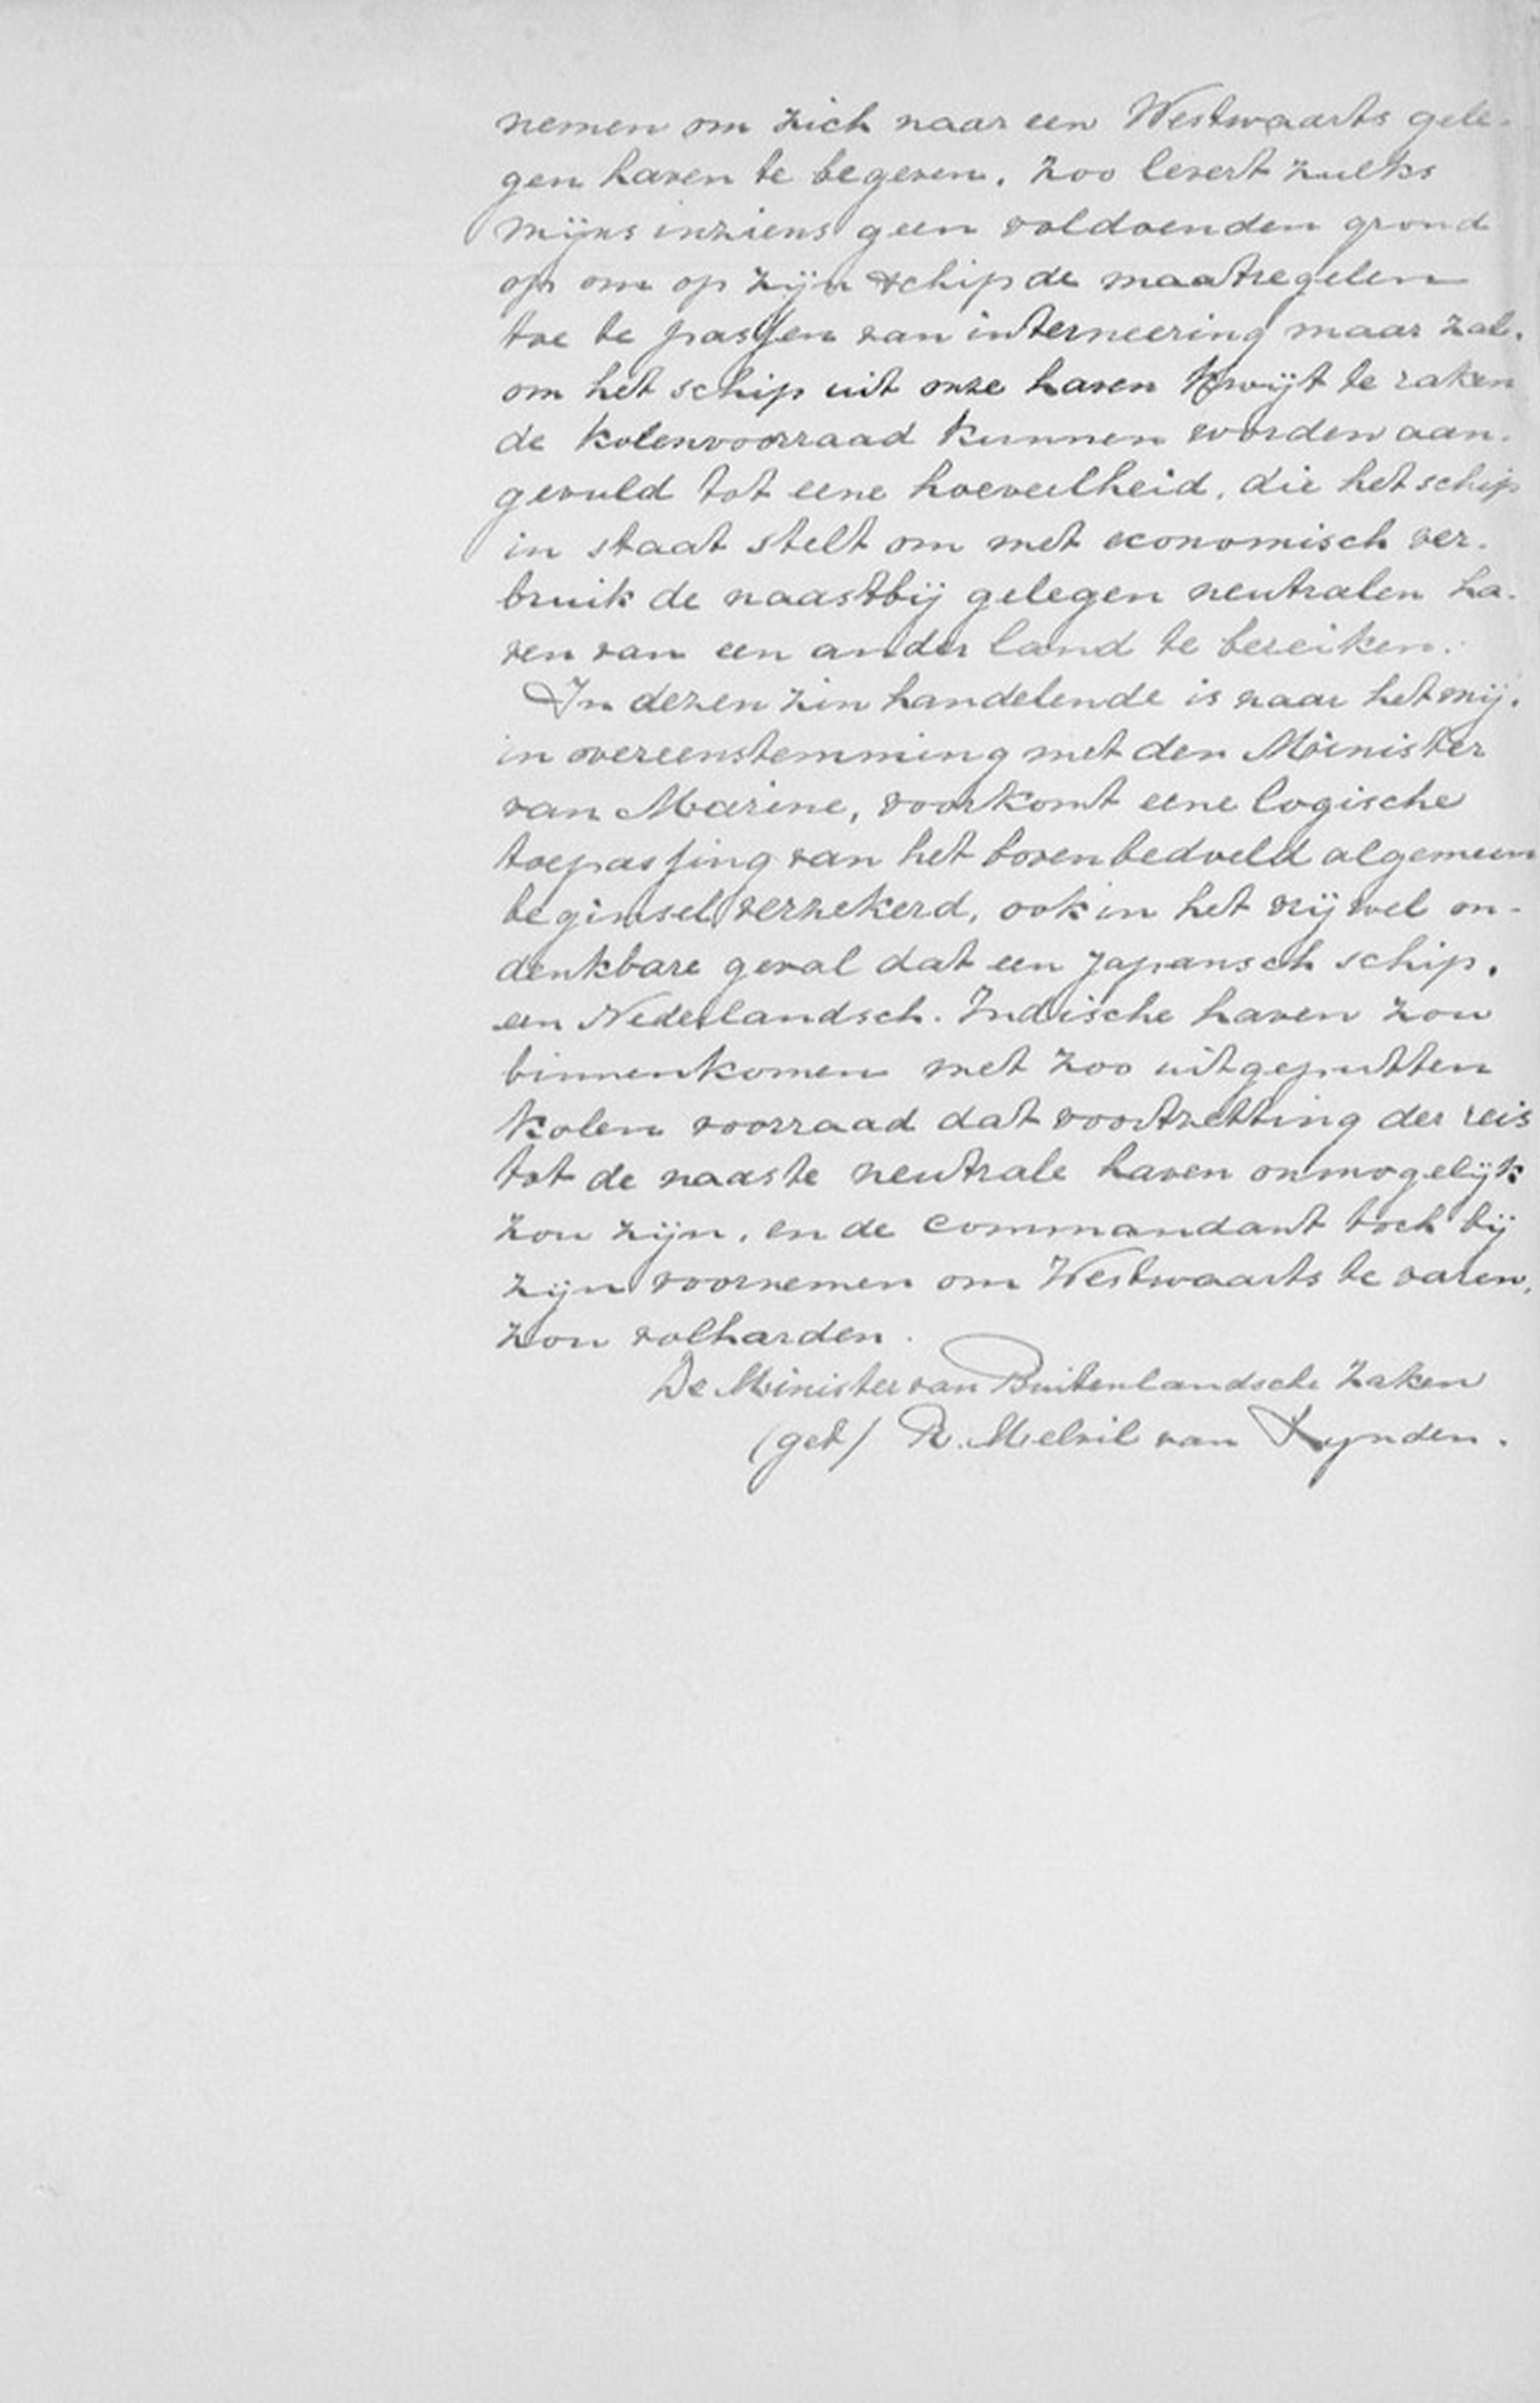 nemen om zich naar een Westwaarts gele-
gen haven te begeven, zoo levert zulks
mijns inziens geen voldoenden grond
op om op zijn schip de maatregelen
toe te passen van interneering maar zal,
om het schip uit onze haven kwijt te raken
de kolenvoorraad kunnen worden aan-
gevuld tot eene hoeveelheid, die het schip
in staat stelt om met economisch ver-
bruik de naastbij gelegen neutralen ha-
ven van een ander land te bereiken.
In dezen zin handelende is naar het mij,
in overeenstemming met den Minister
van Marine, voorkomt eene logische
toepassing van het bovenbedoeld algemeen
beginsel verzekerd, ook in het vrij wel on-
denkbare geval dat een Japansch schip,
een Nederlandsch-Indische haven zou
binnenkomen met zoo uitgeputten
kolen voorraad dat voortzetting der reis
tot de naaste neutrale haven onmogelijk
zou zijn, en de commandant toch bij
zijn voornemen om Westwaarts te varen,
zou volharden.
De Minister van Buitenlandsche Zaken
(get) R. Melvil van Lynden.